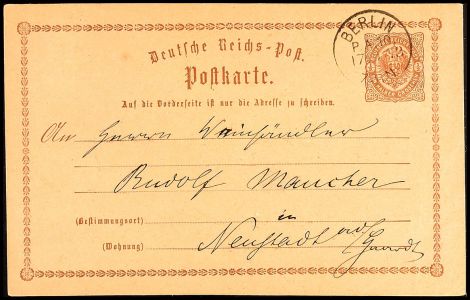 BERLIN
P.A. 10
17
Deutsche Reichs-Post.
Postkarte.
Auf die Vorderseite ist nur die Adresse zu schreiben.
An Herrn Weinhändler
Rudolf Maucher
in
(Bestimmungsort)
Neustadt
(Wohnung)